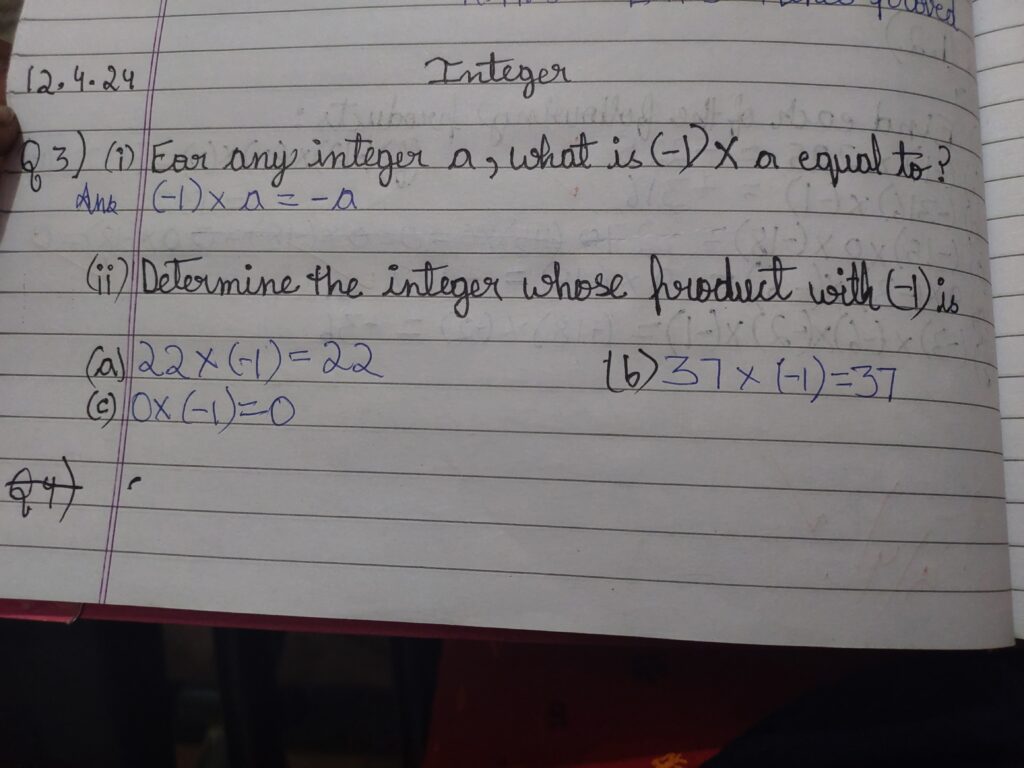 proved
12.4.24 Integer
Q3) (i) For any integer a, what is (-1) × a equal to?
Ans (-1) × a = -a
(ii) Determine the integer whose product with (-1) is
(a) 22 × (-1) = 22 (b) 37 × (-1) = 37
(c) 0 × (-1) = 0
Q4)